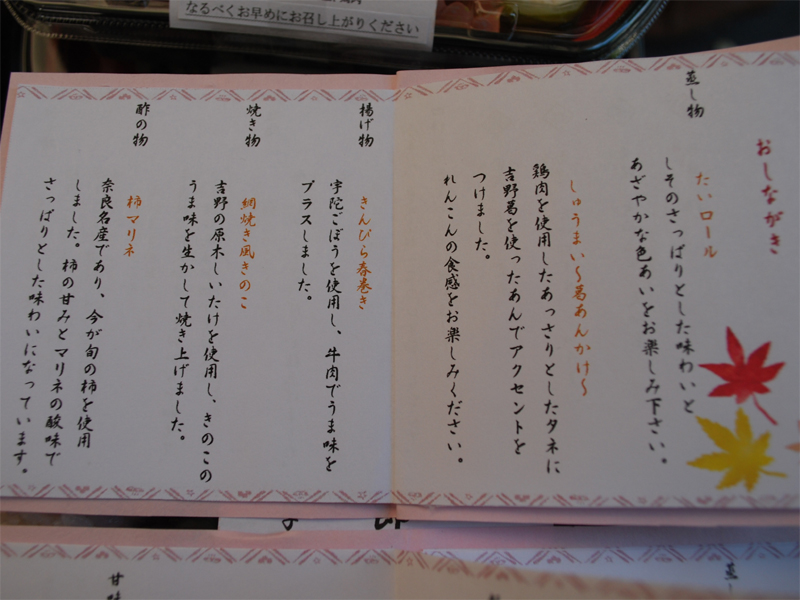 なるべくお早めにお召し上がりください
おしながき
蒸し物
たいロール
しそのさっぱりとした味わいと
あざやかな色あいをお楽しみ下さい。
しゅうまい〜葛あんかけ〜
鶏肉を使用したあっさりとしたタネに
吉野葛を使ったあんでアクセントを
つけました。
れんこんの食感をお楽しみください。
揚げ物
きんぴら春巻き
宇陀ごぼうを使用し、牛肉でうま味を
プラスしました。
焼き物
網焼き風きのこ
吉野の原木しいたけを使用し、きのこの
うま味を生かして焼き上げました。
酢の物
柿マリネ
奈良名産であり、今が旬の柿を使用
しました。柿の甘みとマリネの酸味で
さっぱりとした味わいになっています。
蒸し
甘味